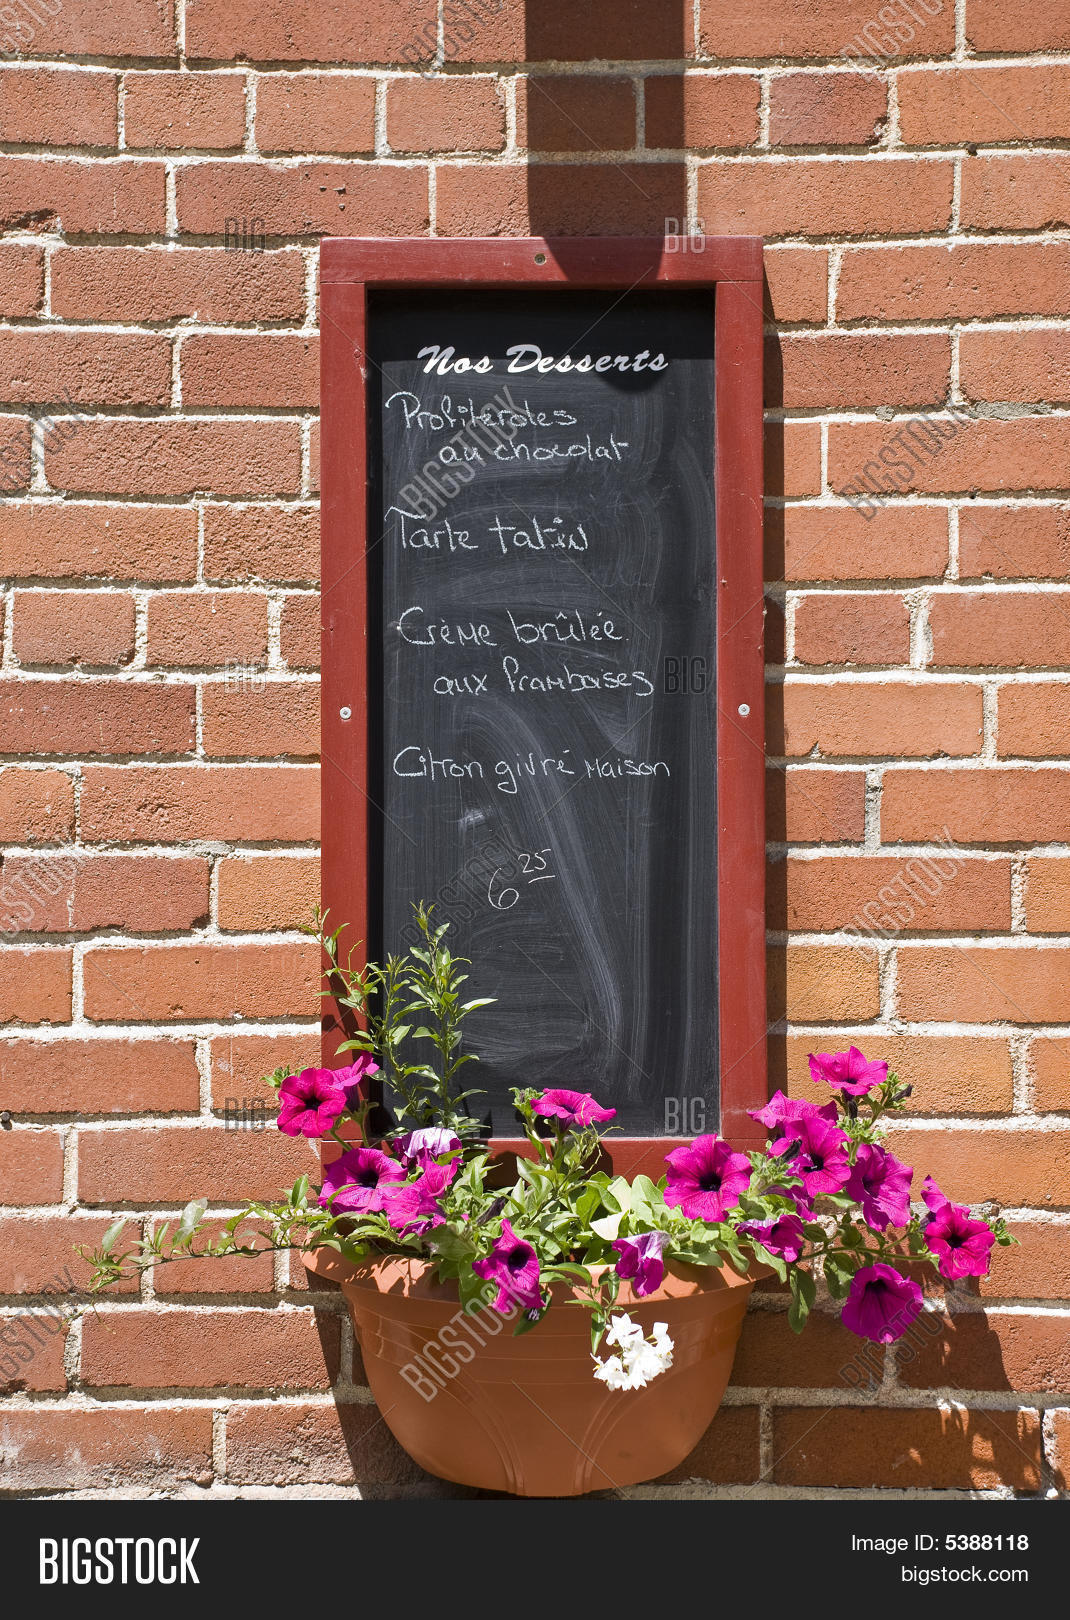 Nos Desserts
Profiteroles
au chocolat
Tarte tatin
Crème brûlée
aux framboises
Citron givré maison
6 25
BIGSTOCK
Image ID: 5388118
bigstock.com